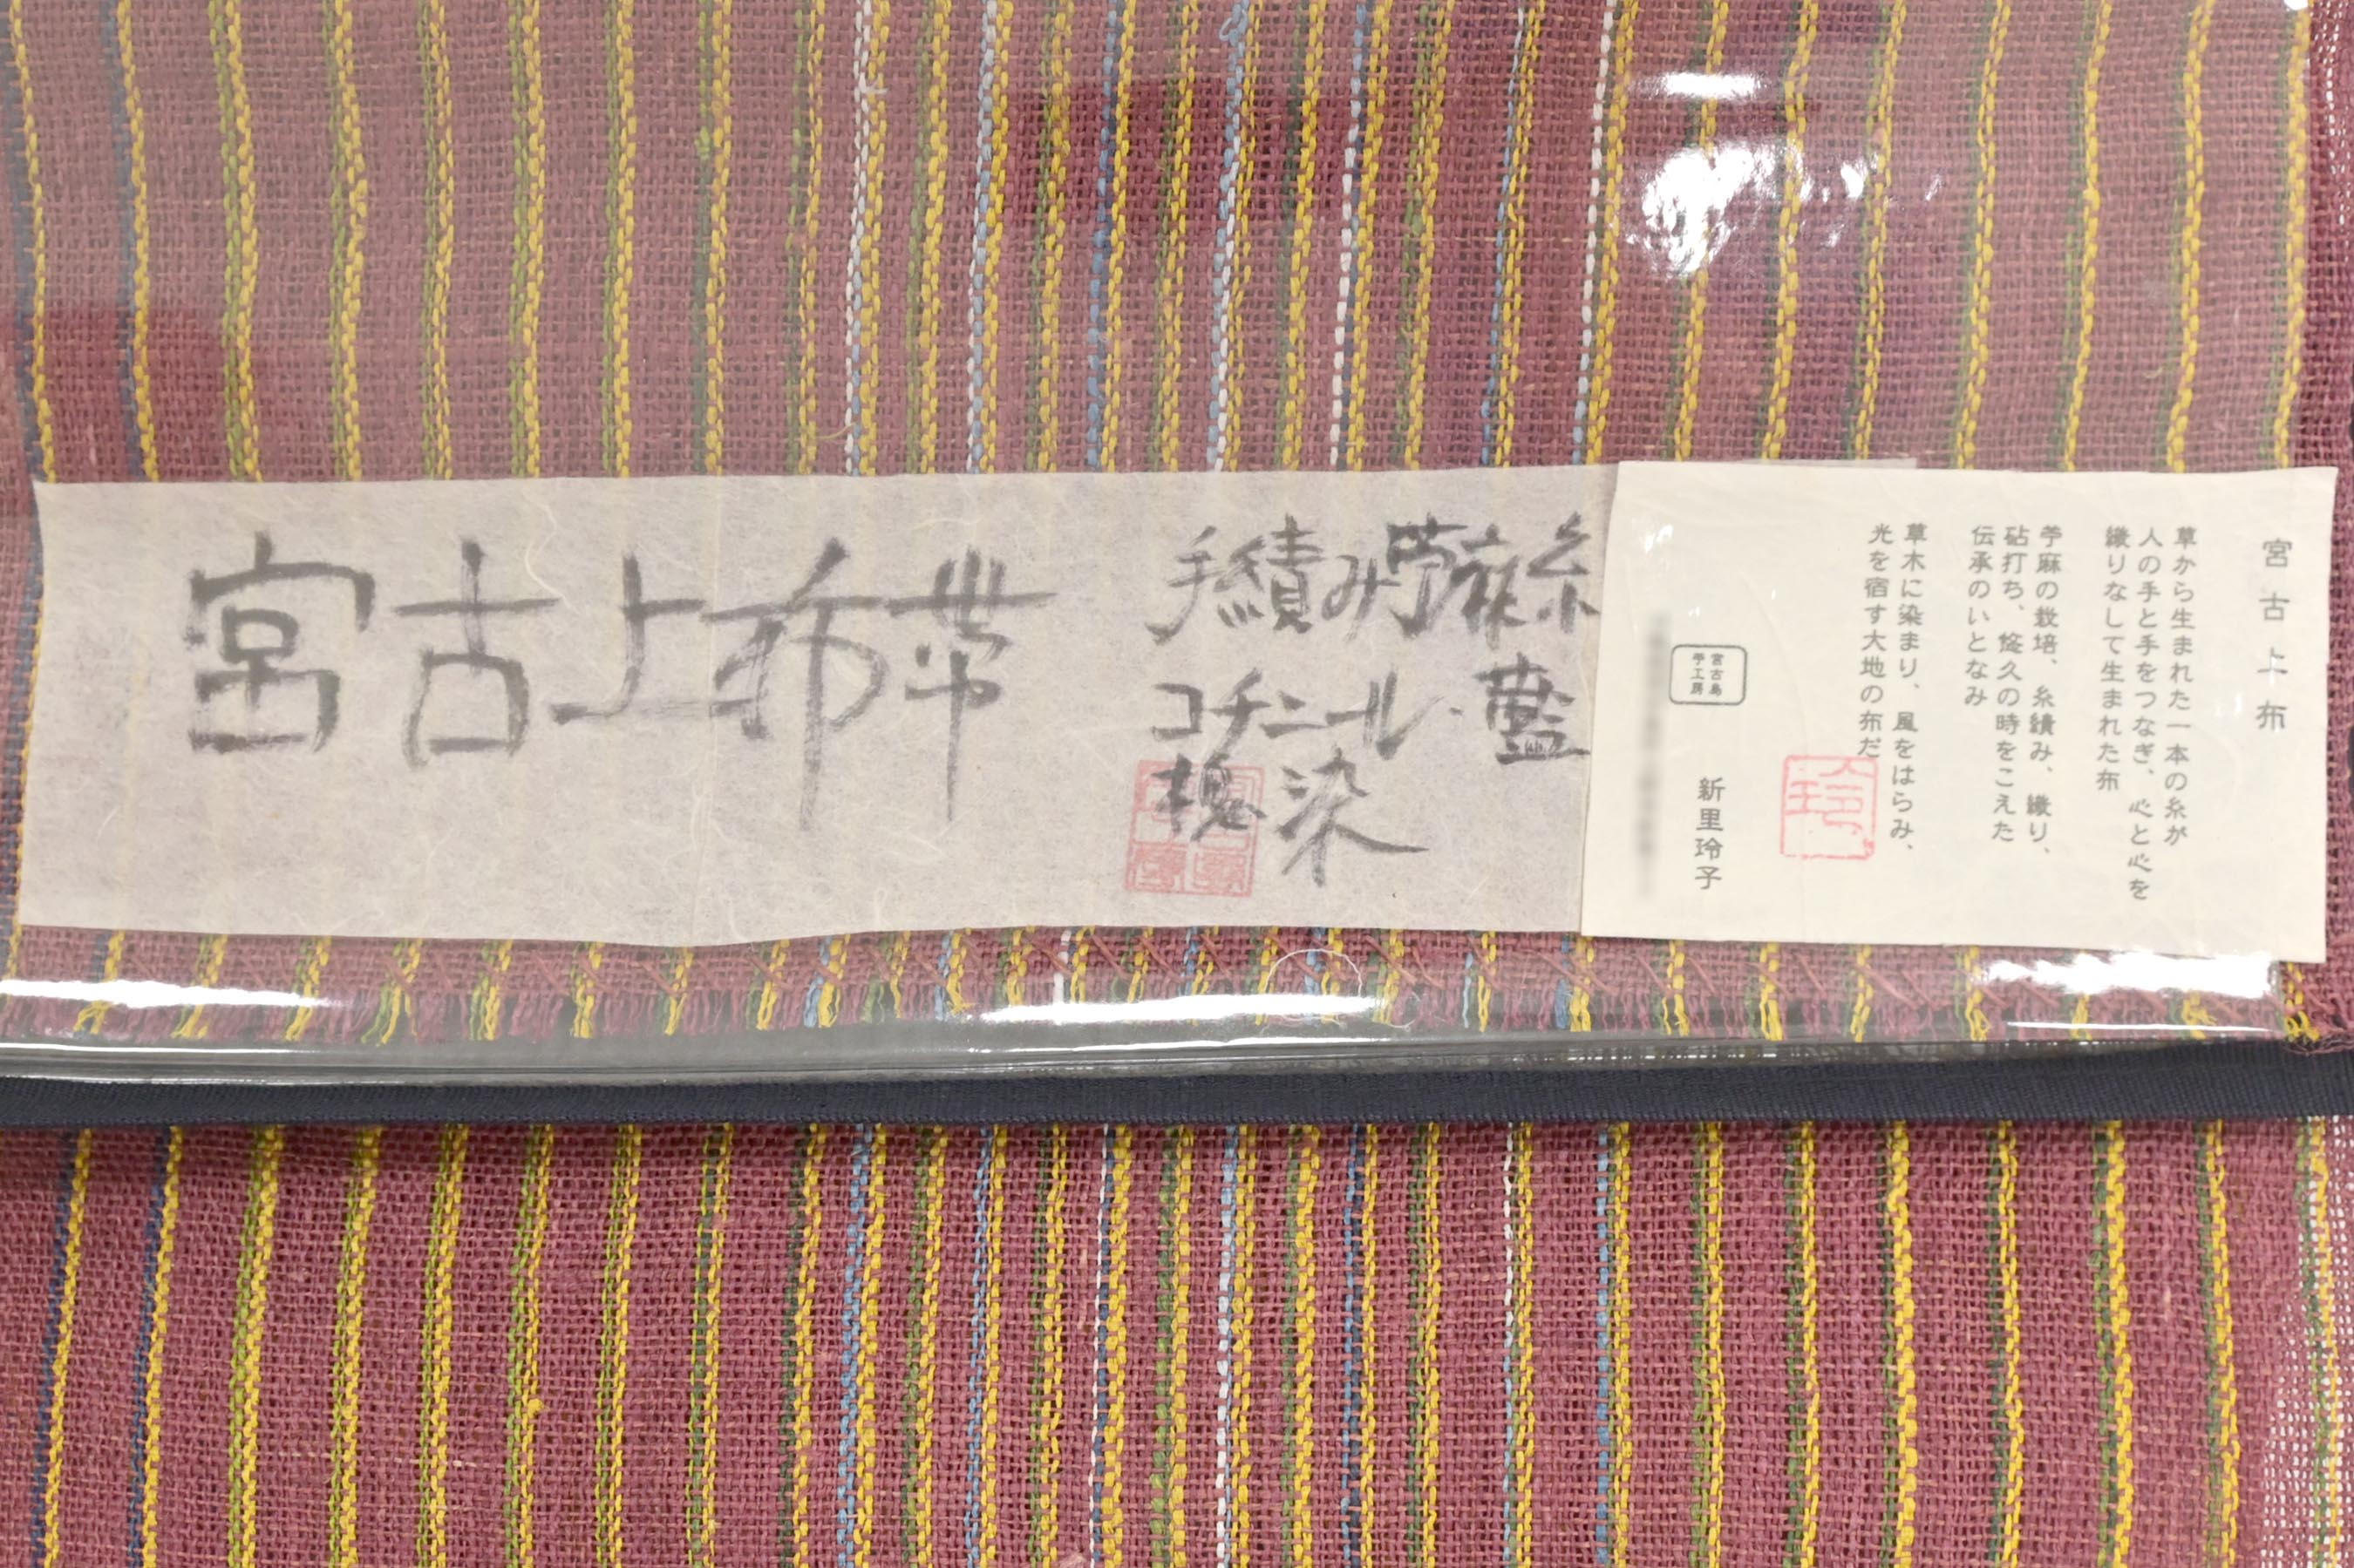 宮古上布帯
手績み苧麻糸
コチニール・藍
槐染
宮古上布
草から生まれた一本の糸が
人の手と手をつなぎ、心と心を
織りなして生まれた布
苧麻の栽培、糸績み、織り、
砧打ち、悠久の時をこえた
伝承のいとなみ
草木に染まり、風をはらみ、
光を宿す大地の布だ
玲
新里玲子
宮古島
手工房